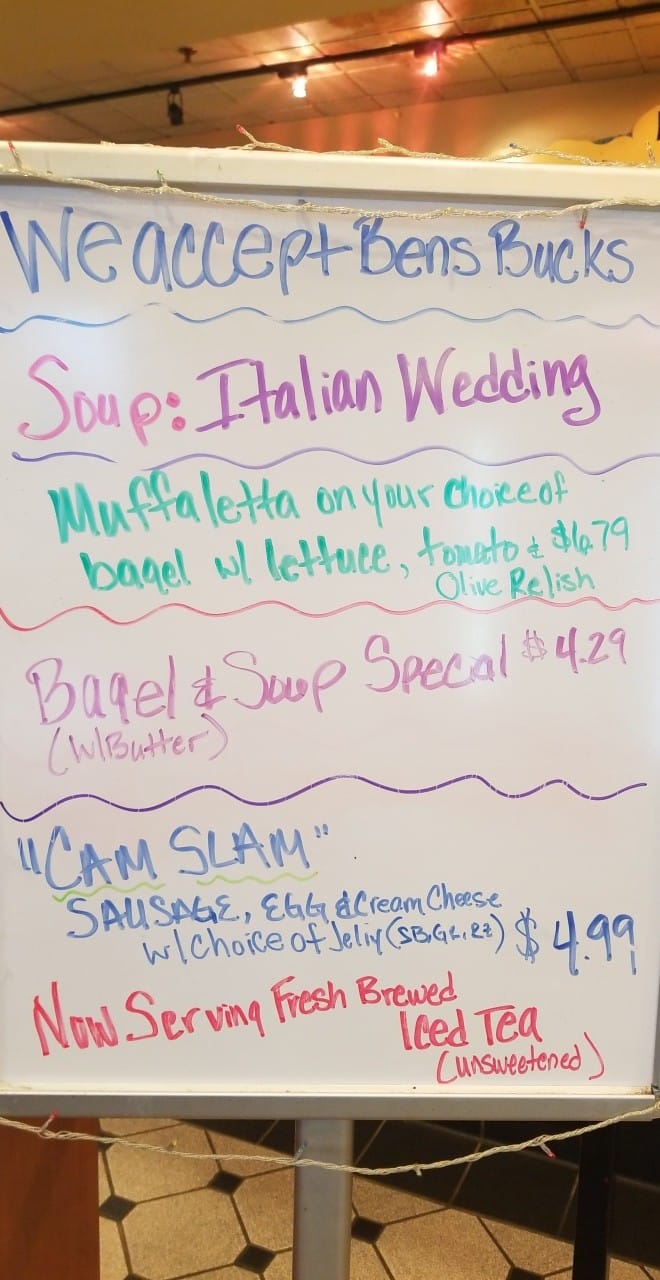 We accept Bens Bucks
Soup: Italian Wedding
Muffaletta on your choice of
bagel w/ lettuce, tomato & $6.79
Olive Relish
Bagel & Soup Special $4.29
(w/Butter)
"CAM SLAM"
SAUSAGE, EGG & Cream Cheese
w/choice of Jelly (SB, GR, RZ) $4.99
Now Serving Fresh Brewed
Iced Tea
(unsweetened)